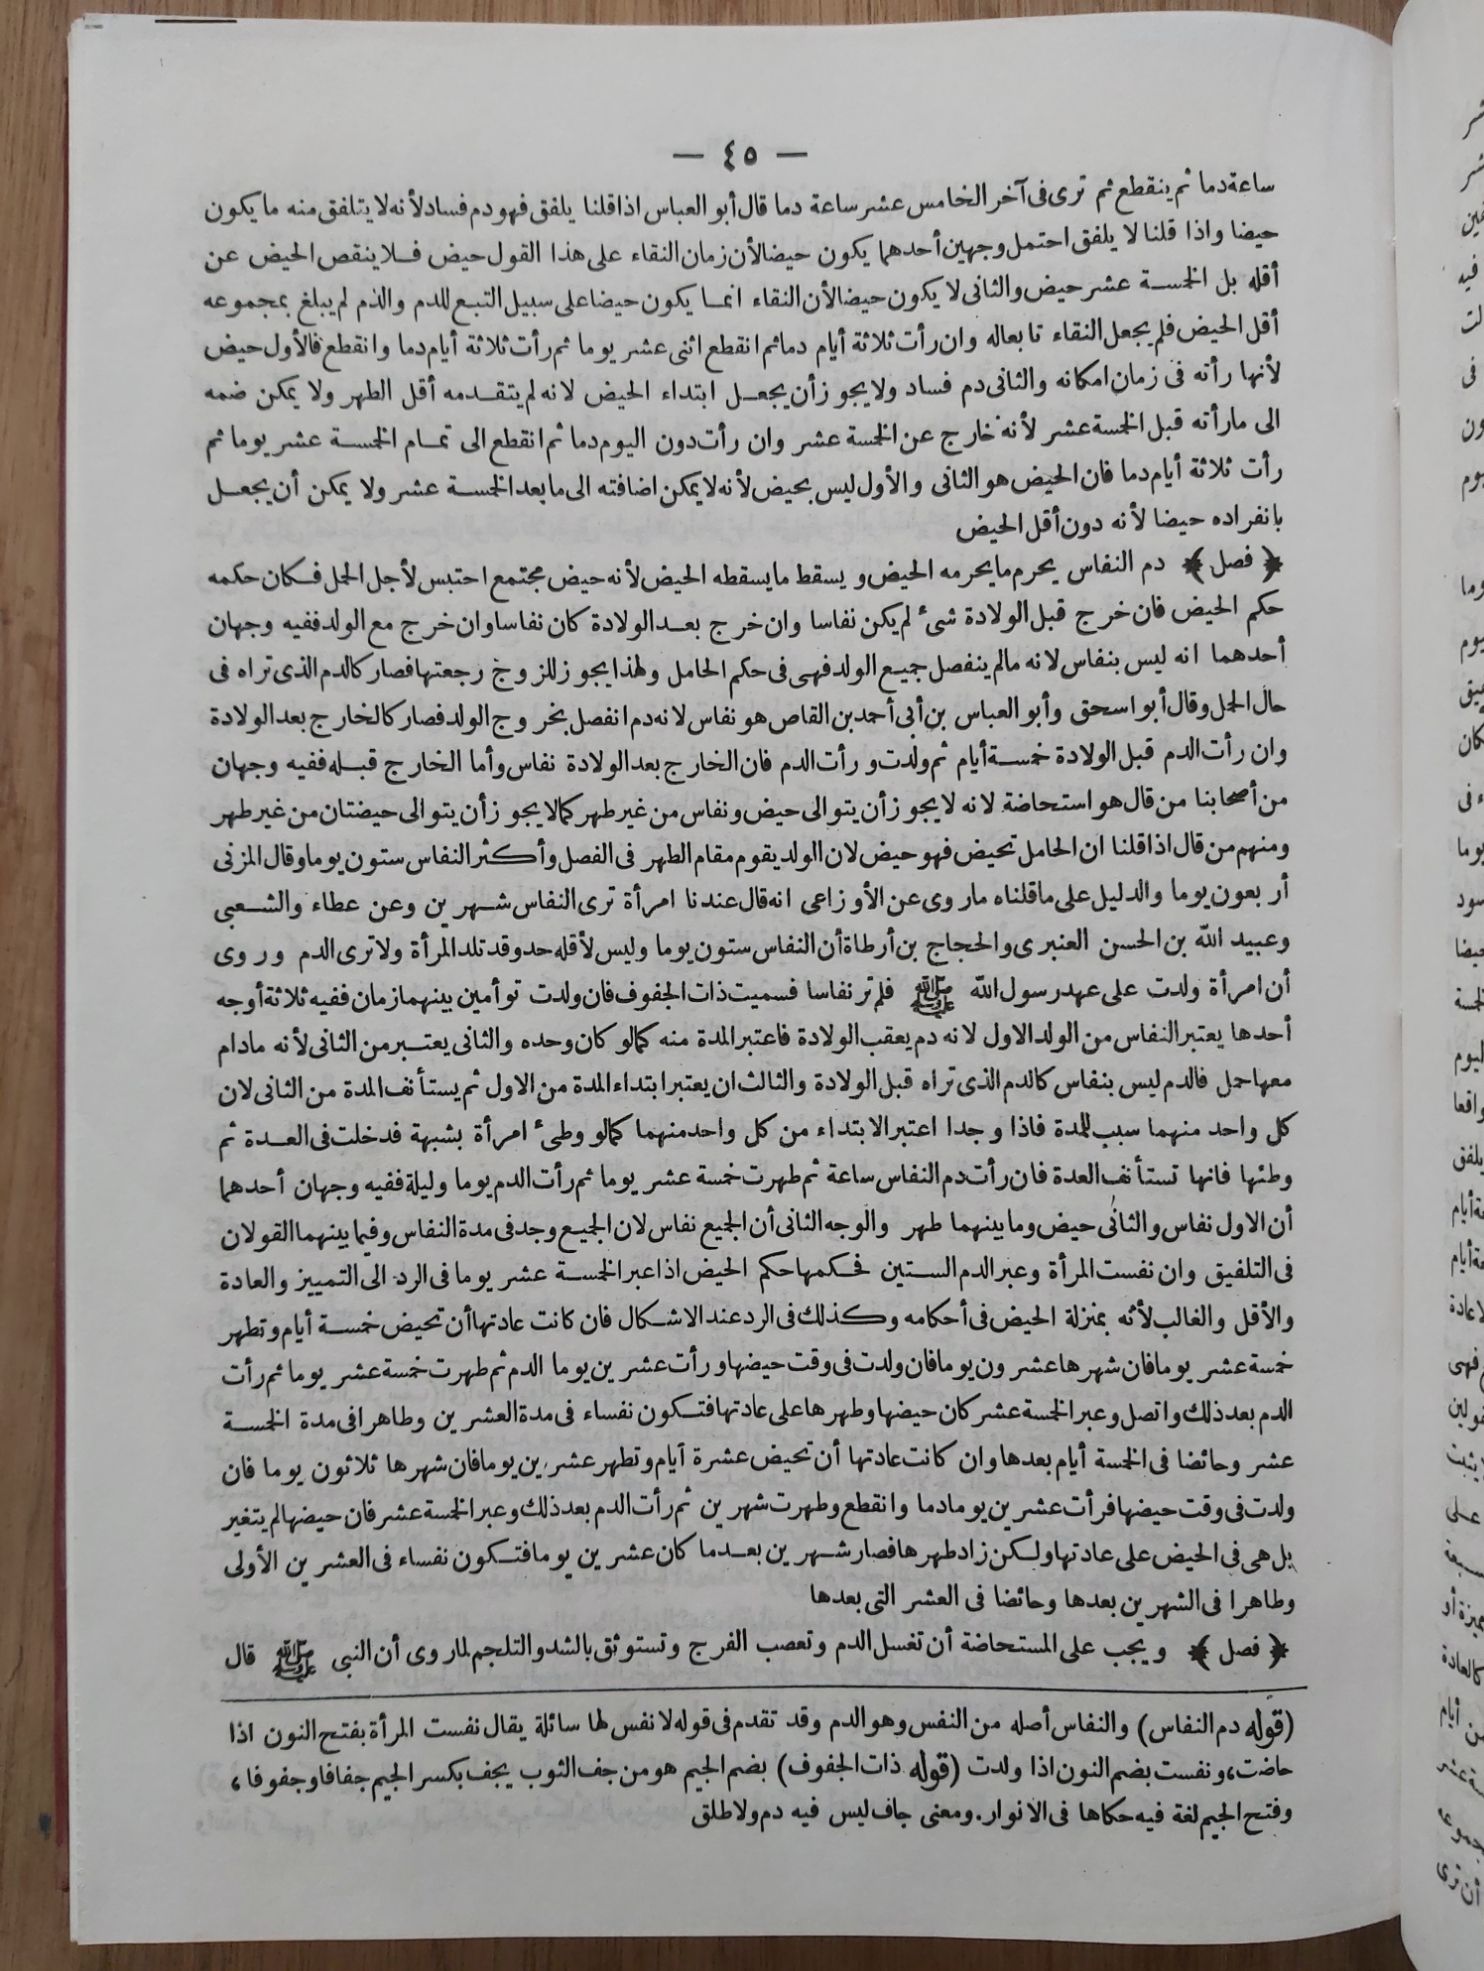 — ٤٥ —
ساعة دما ثم ينقطع ثم ترى فى آخر الخامس عشر ساعة دما قال أبو العباس اذا قلنا يلفق فهو دم فساد لأنه لا يتلفق منه ما يكون
حيضا واذا قلنا لا يلفق احتمل وجهين أحدهما يكون حيضا لأن زمان النقاء على هذا القول حيض فلا ينقص الحيض عن
أقله بل الخمسة عشر حيض والثانى لا يكون حيضا لأن النقاء انما يكون حيضا على سبيل التبع للدم والدم لم يبلغ بمجموعه
أقل الحيض فلم يجعل النقاء تابعاله وان رأت ثلاثة أيام دما ثم انقطع اثنى عشر يوما ثم رأت ثلاثة أيام دما وانقطع فالأول حيض
لأنها رأته فى زمان امكانه والثانى دم فساد ولا يجوز أن يجعل ابتداء الحيض لانه لم يتقدمه أقل الطهر ولا يمكن ضمه
الى ما رأته قبل الخمسة عشر لأنه خارج عن الخمسة عشر وان رأت دون اليوم دما ثم انقطع الى تمام الخمسة عشر يوما ثم
رأت ثلاثة أيام دما فان الحيض هو الثانى والأول ليس بحيض لأنه لا يمكن اضافته الى ما بعد الخمسة عشر ولا يمكن أن يجعل
بانفراده حيضا لأنه دون أقل الحيض
﴿ فصل ﴾ دم النفاس يحرم ما يحرمه الحيض ويسقط ما يسقطه الحيض لأنه حيض مجتمع احتبس لأجل الحمل فكان حكمه
حكم الحيض فان خرج قبل الولادة شىء لم يكن نفاسا وان خرج بعد الولادة كان نفاسا وان خرج مع الولد ففيه وجهان
أحدهما انه ليس بنفاس لانه مالم ينفصل جميع الولد فهى فى حكم الحامل ولهذا يجوز للزوج رجعتها فصار كالدم الذى تراه فى
حال الحمل وقال أبو اسحق وأبو العباس بن أبى أحمد بن القاص هو نفاس لانه دم انفصل بخروج الولد فصار كالخارج بعد الولادة
وان رأت الدم قبل الولادة خمسة أيام ثم ولدت ورأت الدم فان الخارج بعد الولادة نفاس وأما الخارج قبله ففيه وجهان
من أصحابنا من قال هو استحاضة لانه لا يجوز أن يتوالى حيض ونفاس من غير طهر كما لا يجوز أن يتوالى حيضتان من غير طهر
ومنهم من قال اذا قلنا ان الحامل تحيض فهو حيض لان الولد يقوم مقام الطهر فى الفصل وأكثر النفاس ستون يوما وقال المزنى
أربعون يوما والدليل على ما قلناه ما روى عن الأوزاعى انه قال عندنا امرأة ترى النفاس شهرين وعن عطاء والشعبى
وعبيد الله بن الحسن العنبرى والحجاج بن أرطاة أن النفاس ستون يوما وليس لأقله حد وقد تلد المرأة ولا ترى الدم وروى
أن امرأة ولدت على عهد رسول الله ﷺ فلم تر نفاسا فسميت ذات الجفوف فان ولدت توأمين بينهما زمان ففيه ثلاثة أوجه
أحدها يعتبر النفاس من الولد الاول لانه دم يعقب الولادة فاعتبر المدة منه كما لو كان وحده والثانى يعتبر من الثانى لأنه مادام
معها حمل فالدم ليس بنفاس كالدم الذى تراه قبل الولادة والثالث ان يعتبر ابتداء المدة من الاول ثم يستأنف المدة من الثانى لان
كل واحد منهما سبب للمدة فاذا وجدا اعتبر الابتداء من كل واحد منهما كما لو وطىء امرأة بشبهة فدخلت فى العدة ثم
وطئها فانها تستأنف العدة فان رأت دم النفاس ساعة ثم طهرت خمسة عشر يوما ثم رأت الدم يوما وليلة ففيه وجهان أحدهما
أن الاول نفاس والثانى حيض وما بينهما طهر والوجه الثانى أن الجميع نفاس لان الجميع وجد فى مدة النفاس وفيما بينهما القولان
فى التلفيق وان نفست المرأة وعبر الدم الستين فحكمها حكم الحيض اذا عبر الخمسة عشر يوما فى الرد الى التمييز والعادة
والأقل والغالب لأنه بمنزلة الحيض فى أحكامه وكذلك فى الرد عند الاشكال فان كانت عادتها أن تحيض خمسة أيام وتطهر
خمسة عشر يوما فان شهرها عشرون يوما فان ولدت فى وقت حيضها ورأت عشرين يوما الدم ثم طهرت خمسة عشر يوما ثم رأت
الدم بعد ذلك واتصل وعبر الخمسة عشر كان حيضها وطهرها على عادتها فتكون نفساء فى مدة العشرين وطاهرا فى مدة الخمسة
عشر وحائضا فى الخمسة أيام بعدها وان كانت عادتها أن تحيض عشرة أيام وتطهر عشرين يوما فان شهرها ثلاثون يوما فان
ولدت فى وقت حيضها فرأت عشرين يوما دما وانقطع وطهرت شهرين ثم رأت الدم بعد ذلك وعبر الخمسة عشر فان حيضها لم يتغير
بل هى فى الحيض على عادتها ولكن زاد طهرها فصار شهرين بعدما كان عشرين يوما فتكون نفساء فى العشرين الأولى
وطاهرا فى الشهرين بعدها وحائضا فى العشر التى بعدها
﴿ فصل ﴾ ويجب على المستحاضة أن تغسل الدم وتعصب الفرج وتستوثق بالشد والتلجم لما روى أن النبى ﷺ قال
(قوله دم النفاس) والنفاس أصله من النفس وهو الدم وقد تقدم فى قوله لا نفس لها سائلة يقال نفست المرأة بفتح النون اذا
حاضت، ونفست بضم النون اذا ولدت (قوله ذات الجفوف) بضم الجيم هو من جف الثوب يجف بكسر الجيم جفافا وجفوفا،
وفتح الجيم لغة فيه حكاها فى الانوار. ومعنى جاف ليس فيه دم ولا طلق